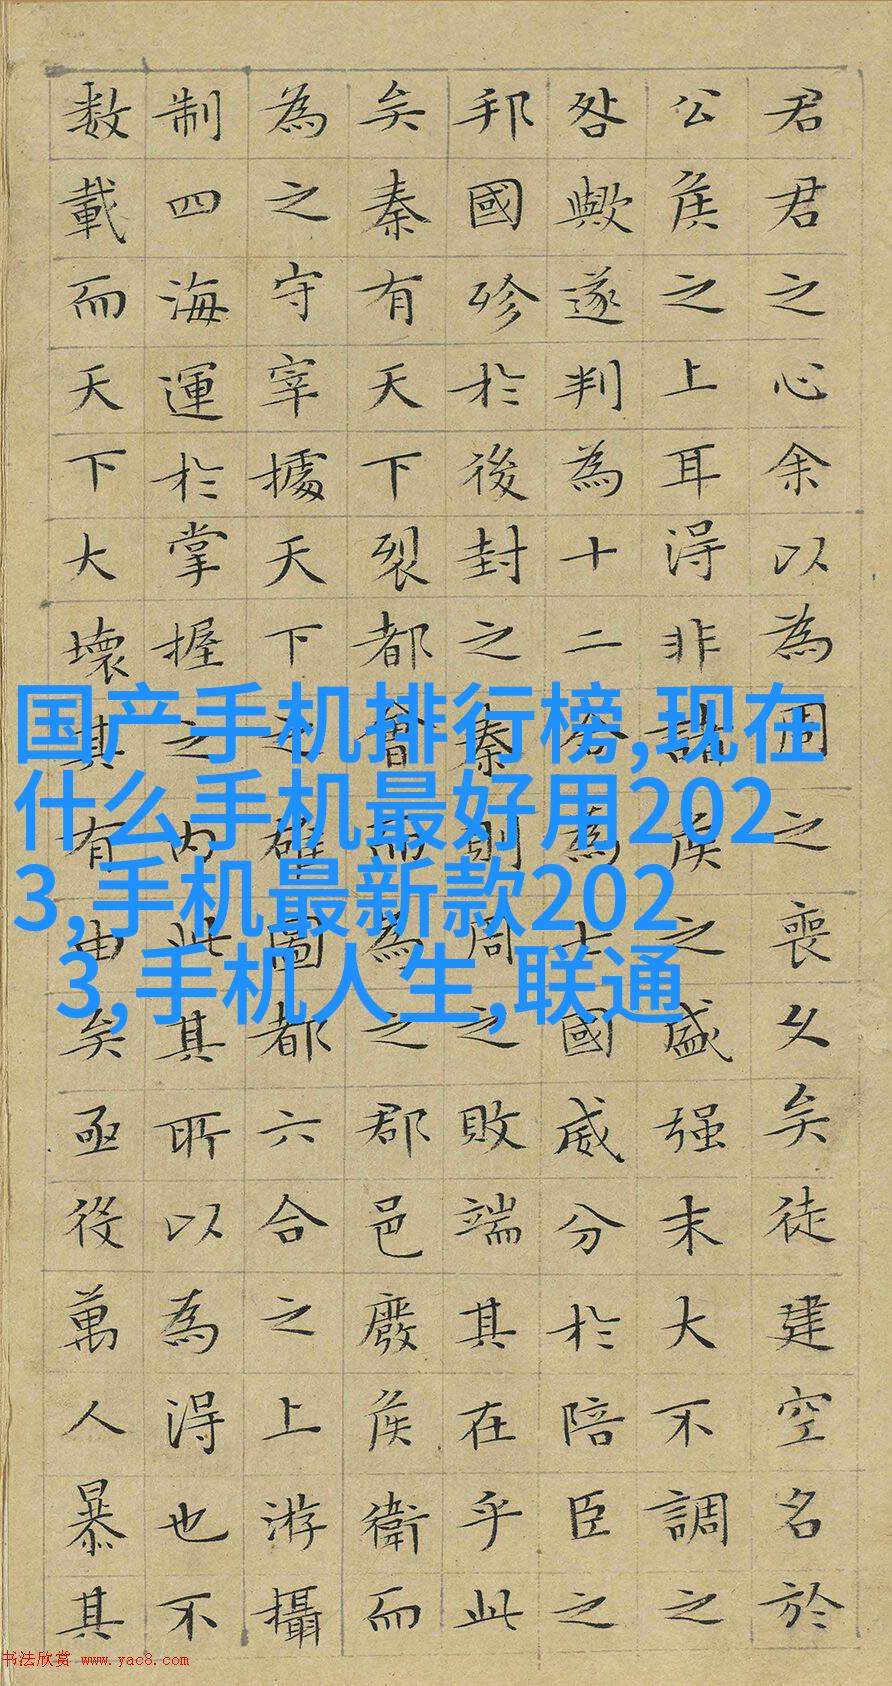 君君之心余以為周之喪乆矣徒建空名於
公侯之上耳得非諸侯之盛强末大不調之
咎歟遂判為十二合為七國威分於陪臣之
邦國殄於後封之秦則周之敗端其在乎此
矣秦有天下裂都會而為之郡邑廢侯衛而
為之守宰據天下之雄圖都六合之上游攝
制四海運於掌握之内此其所以為得也不
数載而天下大壞其有由矣亟役萬人暴其
国产手机排行榜,现在
什么手机最好用202
3,手机最新款202
3,手机人生,联通
书法欣赏 www.yac8.com